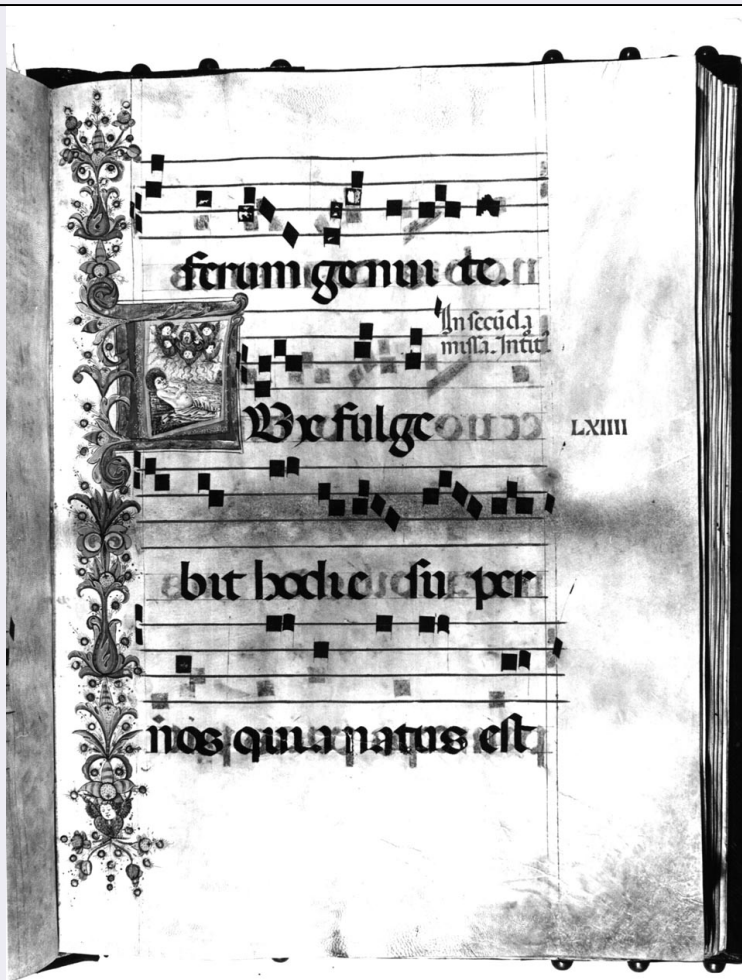 ferum genui te.
In secūda
missa. Intit.
LVx fulge
LXIIII
bit hodie super
nos quia natus est